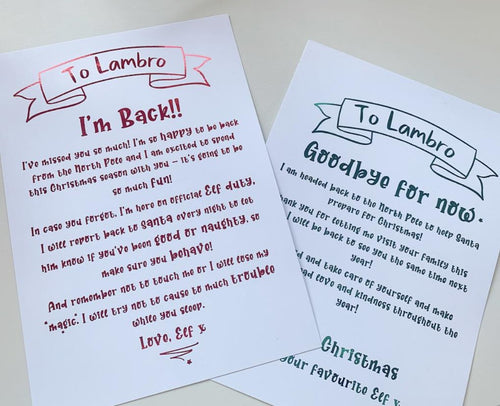 To Lambro
I'm Back!!
I've missed you so much! I'm so happy to be back
from the North Pole and I am excited to spend
this Christmas season with you – it's going to be
so much fun!
In case you forgot, I'm here on official Elf duty,
I will report back to Santa every night to let
him know if you've been good or naughty, so
make sure you behave!
And remember not to touch me or I will lose my
magic. I will try not to cause to much trouble
while you sleep.
Love, Elf x
To Lambro
Goodbye for now
I am headed back to the North Pole to help Santa
prepare for Christmas!
Thank you for letting me visit your family this
I will be back to see you the same time next
year!
and take care of yourself and make
love and kindness throughout the
year!
Christmas
your favourite Elf x